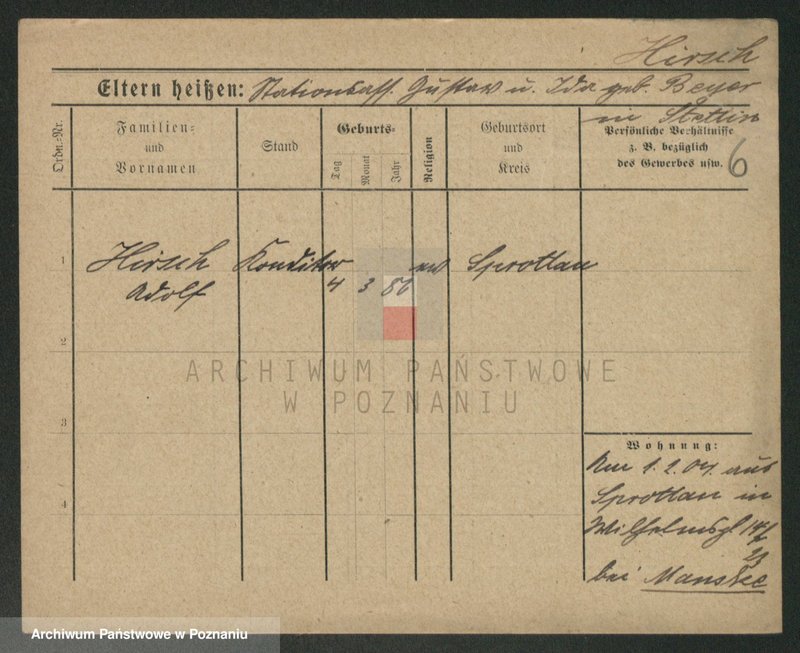 Hirsch
Eltern heißen: Stationsass. Gustav u. Ida geb. Beyer
in Stettin
Ordn.-Nr.
Familien-
und
Vornamen
Stand
Geburts-
Tag
Monat
Jahr
Religion
Geburtsort
und
Kreis
Persönliche Verhältnisse
z. B. bezüglich
des Gewerbes usw.
6
1
Hirsch Konditor ev Sprottau
Adolf 4 3 86
2
ARCHIWUM PAŃSTWOWE
W POZNANIU
3
4
Wohnung:
Am 1. 2. 07. aus
Sprottau in
Wilhelmspl 14/
23
bei Manskee
Archiwum Państwowe w Poznaniu